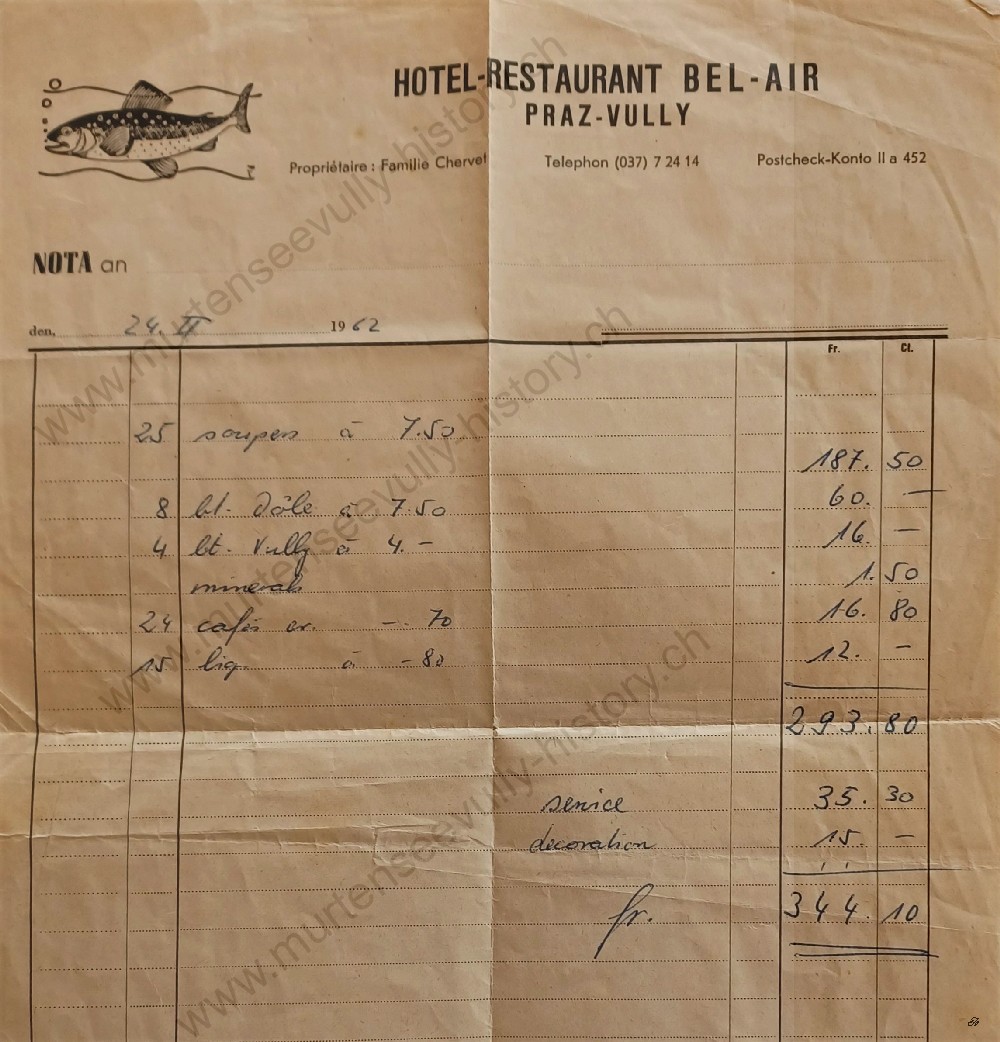 HOTEL-RESTAURANT BEL-AIR
PRAZ-VULLY
Propriétaire : Familie Chervet Telephon (037) 7 24 14 Postcheck-Konto II a 452
NOTA an
den, 24. II 1962
Fr. Ct.
25 soupers à 7.50
187. 50
60. —
8 bt. Dôle à 7.50
16. —
4 bt. Vully à 4. –
1. 50
minerals
16. 80
24 cafés cr. –. 70
12. —
15 liq. à – 80
293. 80
service 35. 30
decoration 15. –
fr. 344. 10
www.murtenseevully-history.ch
www.murtenseevully-history.ch
www.murtenseevully-history.ch